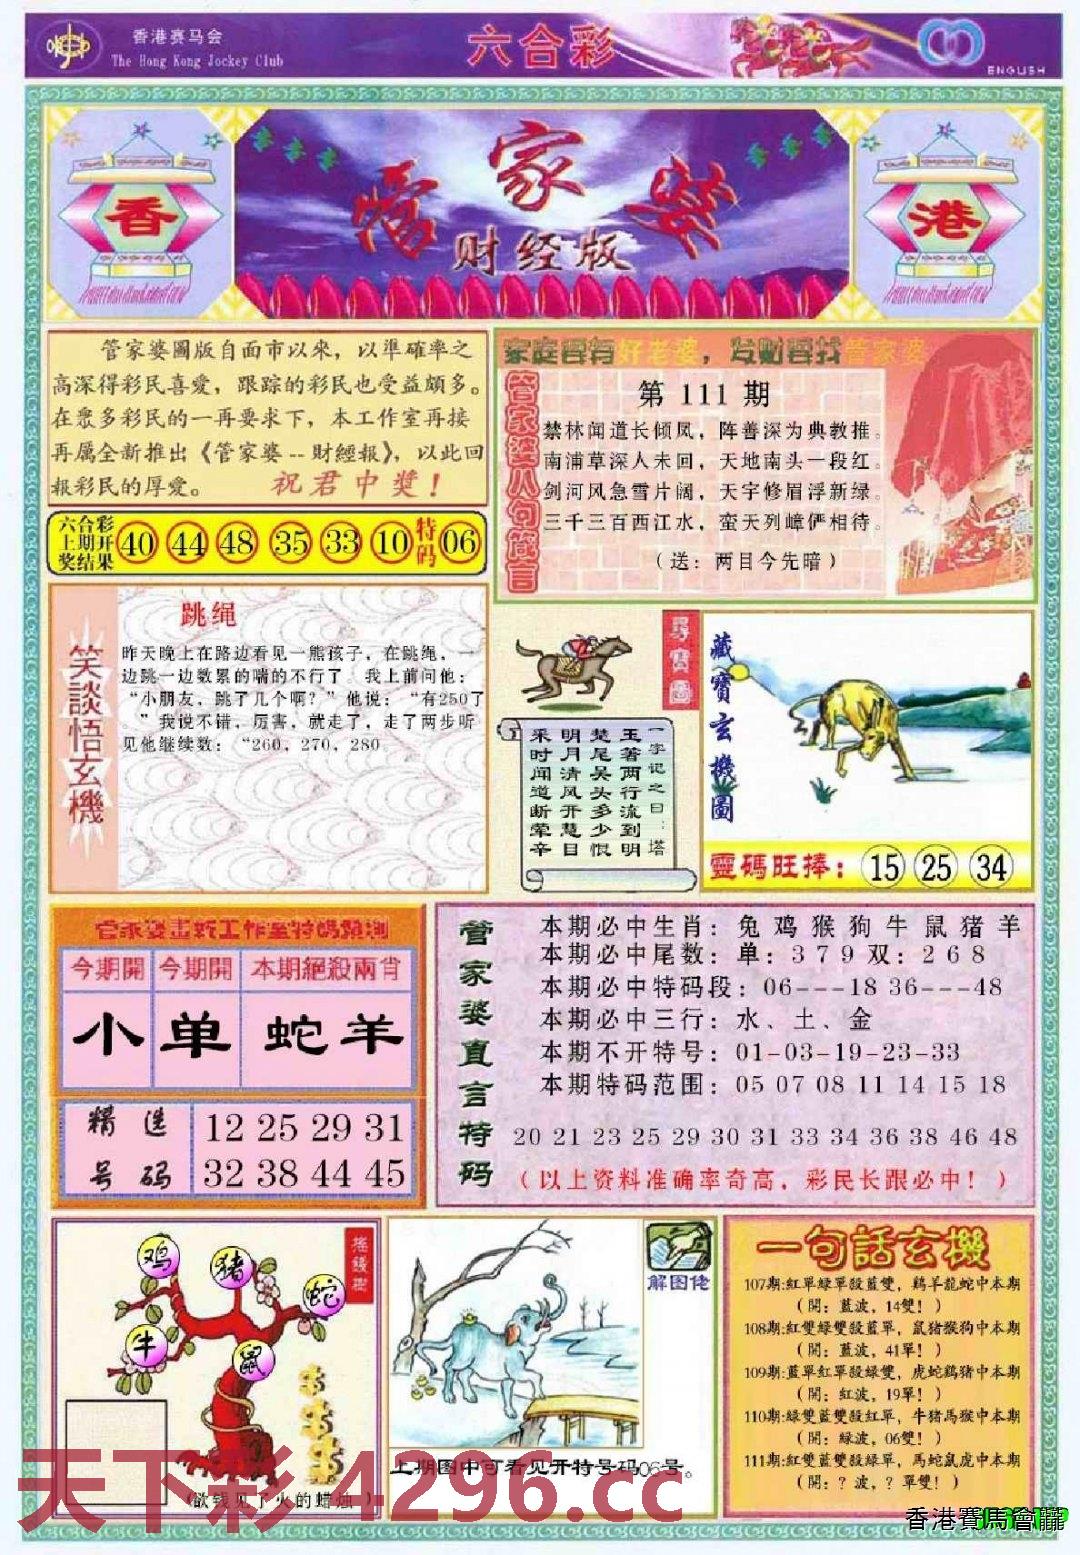 香港赛马会
The Hong Kong Jockey Club
六合彩
ENGLISH
香
管家婆
财经版
港
管家婆圖版自面市以來，以準確率之
高深得彩民喜愛，跟踪的彩民也受益頗多。
在眾多彩民的一再要求下，本工作室再接
再厲全新推出《管家婆--財經報》，以此回
報彩民的厚愛。 祝君中獎！
六合彩
上期开
奖结果
40 44 48 35 33 10 特码 06
家庭要有好老婆，发财要找管家婆
管家婆八句箴言
第 111 期
禁林闻道长倾凤，阵善深为典教推。
南浦草深人未回，天地南头一段红。
剑河风急雪片阔，天宇修眉浮新绿。
三千三百西江水，蛮天列嶂俨相待。
（送：两目今先暗）
笑談悟玄機
跳绳
昨天晚上在路边看见一熊孩子，在跳绳，一
边跳一边数累的喘的不行了，我上前问他：
“小朋友，跳了几个啊？”他说：“有250了
”我说不错，厉害，就走了，走了两步听
见他继续数：“260，270，280
尋寶圖
一字记之曰：塔
玉著两行流到明
楚尾吴头多少恨
明月清风开慧目
采时闻道断荤辛
藏寶玄機圖
靈碼旺捧：15 25 34
管家婆畫新工作室特碼預測
今期開 今期開 本期絕殺兩肖
小 单 蛇 羊
精选
号码
12 25 29 31
32 38 44 45
管家婆直言特码
本期必中生肖：兔 鸡 猴 狗 牛 鼠 猪 羊
本期必中尾数：单：3 7 9 双：2 6 8
本期必中特码段：06---18 36---48
本期必中三行：水、土、金
本期不开特号：01-03-19-23-33
本期特码范围：05 07 08 11 14 15 18
20 21 23 25 29 30 31 33 34 36 38 46 48
（以上资料准确率奇高，彩民长跟必中！）
搖錢樹
鸡
猪
蛇
牛
鼠
（欲钱见了火的蜡烛）
解图佬
上期图中可看见开特号码06号。
一句話玄機
107期:紅單綠單殺藍雙，鷄羊龍蛇中本期
（開：藍波，14雙！）
108期:紅雙綠雙殺藍單，鼠猪猴狗中本期
（開：藍波，41單！）
109期:藍單紅單殺綠雙，虎蛇鷄猪中本期
（開：紅波，19單！）
110期:綠雙藍雙殺紅單，牛猪馬猴中本期
（開：綠波，06雙！）
111期:紅雙藍雙殺綠單，馬蛇鼠虎中本期
（開：？波，？單雙！）
天下彩 4296.cc
香港賽馬會